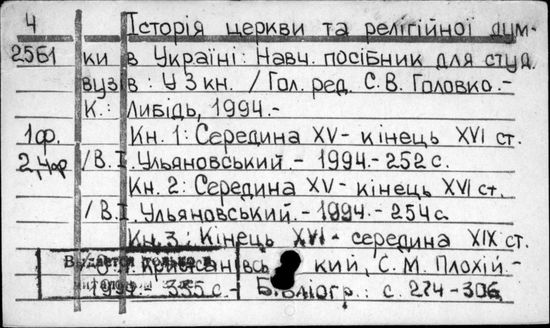 4 Історія церкви та релігійної дум-
2561 ки в Україні: Навч. посібник для студ.
вузів: У 3 кн. / Гол. ред. С. В. Головко.-
К.: Либідь, 1994.-
1ф. Кн. 1: Середина XV - кінець XVI ст.
2,4аф /В. І. Ульяновський.- 1994.- 252 с.
Кн. 2: Середина XV - кінець XVI ст.
/В. І. Ульяновський.- 1994.- 254 с.
Кн. 3: Кінець XVI - середина XIX ст.
Выдается только в
кий, С. М. Плохій.-
335 с.- Бібліогр.: с. 274-306